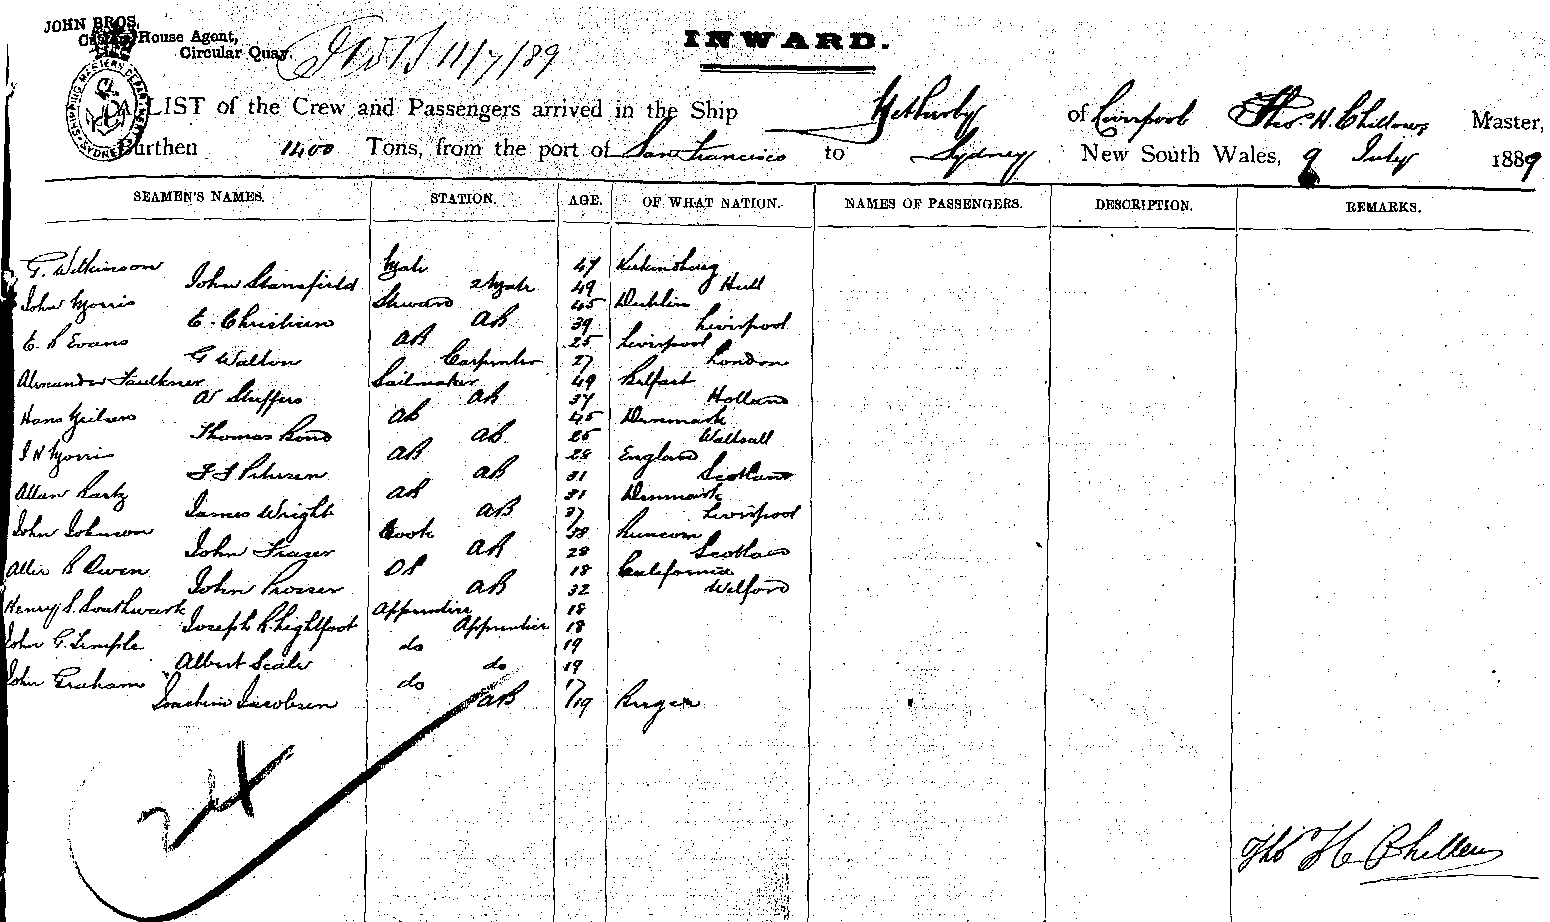 JOHN BROS,
Custom House Agent,
Circular Quay.
11/7/89
INWARD.
SHIPPING MASTERS DEPARTMENT SYDNEY
LIST of the Crew and Passengers arrived in the Ship of Liverpool Thos. H. Master,
Burthen 1400 Tons, from the port of San Francisco to Sydney New South Wales, 9 July 1889
SEAMEN'S NAMES. STATION. AGE. OF WHAT NATION. NAMES OF PASSENGERS. DESCRIPTION. REMARKS.
G. Wilkinson Mate 47
John Stansfield 2 Mate 49 Hull
John Morris Steward 45 Dublin
E. Christisen AB 39 Liverpool
E. R Evans AB 25 Liverpool
G Walton Carpenter 27 London
Alexander Faulkner Sailmaker 49 Belfast
W Steffers AB 37 Holland
Hans Neilsen AB 45 Denmark
Thomas Bond AB 25 Walsall
J H Morris AB 28 England
J J Petersen AB 31 Scotland
Allan AB 31 Denmark
James Wright AB 37 Liverpool
John Johnson Cook 38 Runcorn
John Fraser AB 28 Scotland
R Owen OS 18 California
John Prosser AB 32 Welford
Henry S. Southwark Apprentice 18
Joseph R. Lightfoot Apprentice 18
John G. Temple do 19
Albert Seale do 19
John Graham do 17
Joachim Jacobsen AB 19
24
Thos H